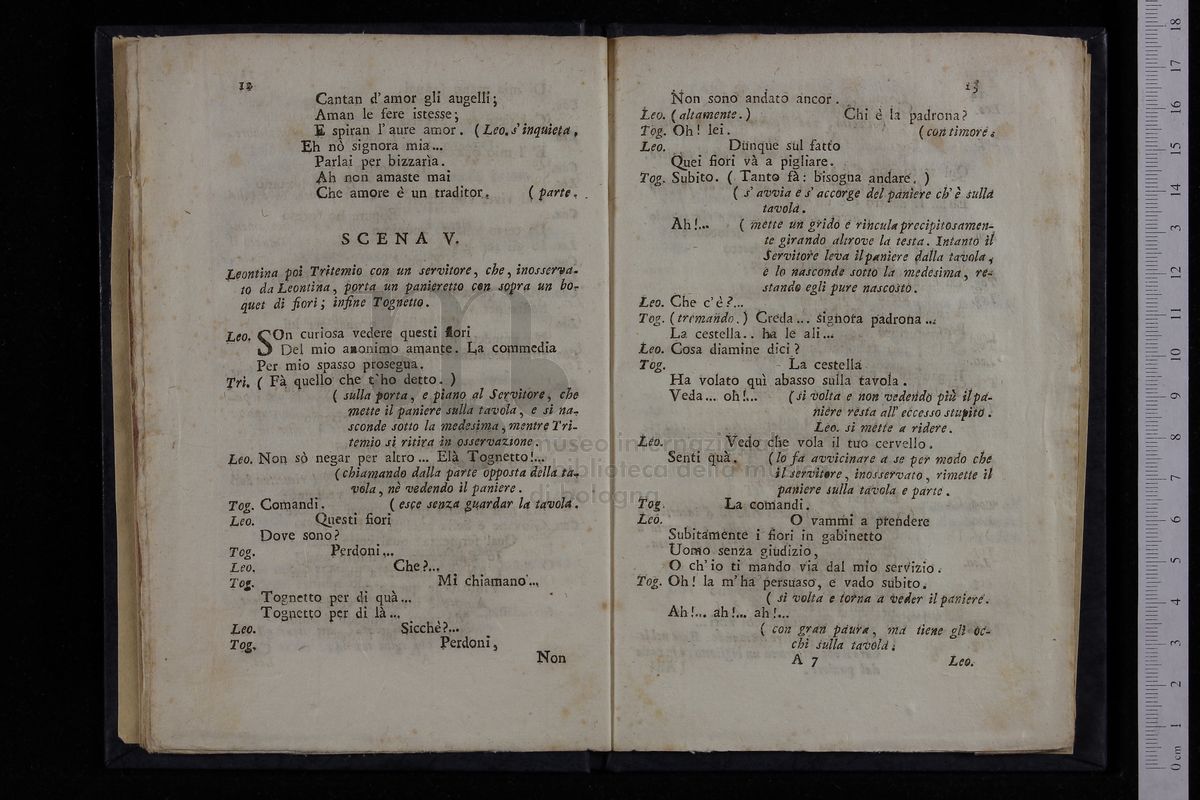 12
Cantan d'amor gli augelli;
Aman le fere istesse;
E spiran l'aure amor. (Leo. s'inquieta.
Eh nò signora mia...
Parlai per bizzarìa.
Ah non amaste mai
Che amore è un traditor. (parte.
SCENA V.
Leontina poi Tritemio con un servitore, che, inosserva-
to da Leontina, porta un panieretto con sopra un bo-
quet di fiori; infine Tognetto.
Leo. SOn curiosa vedere questi fiori
Del mio anonimo amante. La commedia
Per mio spasso prosegua.
Tri. ( Fà quello che t'ho detto. )
( sulla porta, e piano al Servitore, che
mette il paniere sulla tavola, e si na-
sconde sotto la medesima, mentre Tri-
temio si ritira in osservazione.
Leo. Non sò negar per altro... Elà Tognetto!...
(chiamando dalla parte opposta della ta-
vola, nè vedendo il paniere.
Tog. Comandi. ( esce senza guardar la tavola.
Leo. Questi fiori
Dove sono?
Tog. Perdoni...
Leo. Che?...
Tog. Mi chiamano...
Tognetto per di quà...
Tognetto per di là...
Leo. Sicchè?...
Tog. Perdoni,
Non
13
Non sono andato ancor.
Leo. (altamente.) Chi è la padrona?
Tog. Oh! lei. (con timore.
Leo. Dunque sul fatto
Quei fiori và a pigliare.
Tog. Subito. ( Tanto fà: bisogna andare. )
( s'avvia e s'accorge del paniere ch'è sulla
tavola.
Ah!... ( mette un grido e rincula precipitosamen-
te girando altrove la testa. Intanto il
Servitore leva il paniere dalla tavola,
e lo nasconde sotto la medesima, re-
stando egli pure nascosto.
Leo. Che c'è?...
Tog. (tremando.) Creda... signora padrona...
La cestella.. ha le ali...
Leo. Cosa diamine dici?
Tog. La cestella
Ha volato quì abasso sulla tavola.
Veda... oh!... (si volta e non vedendo più il pa-
niere resta all'eccesso stupito.
Leo. si mette a ridere.
Leo. Vedo che vola il tuo cervello.
Senti quà. (lo fa avvicinare a se per modo che
il servitore, inosservato, rimette il
paniere sulla tavola e parte.
Tog. La comandi.
Leo. O vammi a prendere
Subitamente i fiori in gabinetto
Uomo senza giudizio,
O ch'io ti mando via dal mio servizio.
Tog. Oh! la m'ha persuaso, e vado subito.
( si volta e torna a veder il paniere.
Ah!... ah!... ah!...
( con gran paura, ma tiene gli oc-
chi sulla tavola.
A 7 Leo.
museo internazionale
biblioteca della musica
di bologna
0 cm 1 2 3 4 5 6 7 8 9 10 11 12 13 14 15 16 17 18